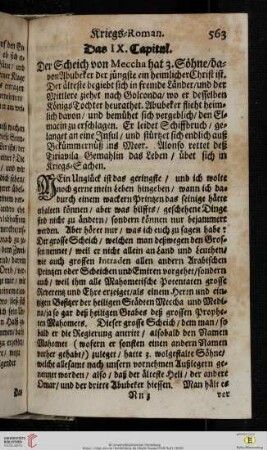 Kriegs-Roman. 563
Das IX. Capitul.
Der Scheich von Meccha hat 3. Söhne/da-
von Abubeker der jüngste ein heimlicher Christ ist.
Der älteste begiebt sich in fremde Länder/und der
Mittlere ziehet nach Golconda/wo er desselben
Königs Tochter heurathet. Abubeker fliehet heim-
lich davon/ und bemühet sich vergeblich/den El-
macin zu erschlagen. Er leidet Schiffbruch/ ge-
langet an eine Insul/ und stürtzet sich endlich auß
Bekümmernüß ins Meer. Alonso rettet deß
Tiriavila Gemahlin das Leben/ übet sich in
Kriegs-Sachen.
MEin Unglück ist das geringste / und ich wolte
noch gerne mein Leben hingeben/ wann ich da-
durch einem wackern Printzen das seinige hätte
erhalten können / aber was hilffts/ geschehene Dinge
sind nicht zu ändern/ sondern können nur bejammert
werden. Aber höret nur / was ich euch zu sagen habe:
Der grosse Scheich/ welchen man deßwegen den Gros-
sen nennet/ weil er nicht allein an Land und Leuthen/
wie auch grossen allen andern Arabischen
Printzen oder Scheichen und Emiren vorgehet/sondern
auch/ weil ihm alle Mahometische Potentaten grosse
Reverentz und Ehre erzeigen/als einem Herrn und ein-
tzigen Besitzer der heiligen Städten Meccha und Medi-
na/ja so gar deß heiligen Grabes deß grossen Prophe-
ten Mahomets. Dieser grosse Scheich/ dem man/so
bald er die Regierung antritt/ alsobald den Namen
Mahomet (wofern er sonsten einen andern Namen
vorher gehabt/) zuleget / hatte 3. wolgestalte Söhne/
welche allesamt nach unsern vornehmen Außlegern ge-
nennet worden/ also/ daß der älteste Heli/ der andere
Omar/ und der dritte Abubeker hiessen. Man hält es
Nn 3 ver